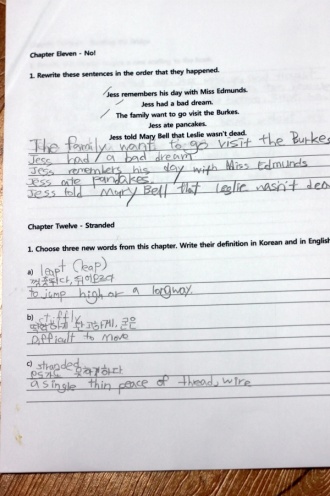 Chapter Eleven - No!
1. Rewrite these sentences in the order that they happened.
Jess remembers his day with Miss Edmunds.
Jess had a bad dream.
The family want to go visit the Burkes.
Jess ate pancakes.
Jess told Mary Bell that Leslie wasn't dead.
The family want to go visit the Burkes
Jess had a bad dream
Jess remembers his day with Miss Edmunds
Jess ate pancakes.
Jess told Mary Bell that Leslie wasn't dea
Chapter Twelve - Stranded
1. Choose three new words from this chapter. Write their definition in Korean and in English
a) leapt (leap)
껑충뛰다, 뛰어오르다
to jump high or a longway.
b) stiffly
딱딱하게, 완고하게, 굳은
difficult to move
c) stranded
못하게하다
a single thin peace of thead, wire